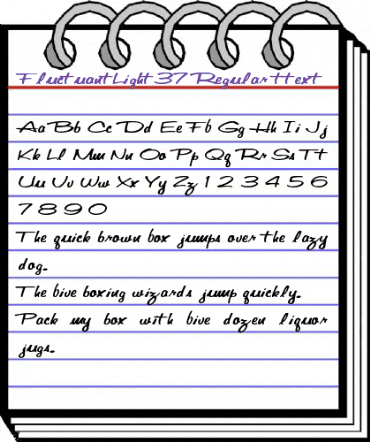 Fluctuant Light 37 Regular Ttext
Aa Bb Cc Dd Ee Ff Gg Hh Ii Jj
Kk Ll Mm Nn Oo Pp Qq Rr Ss Tt
Uu Vv Ww Xx Yy Zz 1 2 3 4 5 6
7 8 9 0
The quick brown fox jumps over the lazy
dog.
The five boxing wizards jump quickly.
Pack my box with five dozen liquor
jugs.